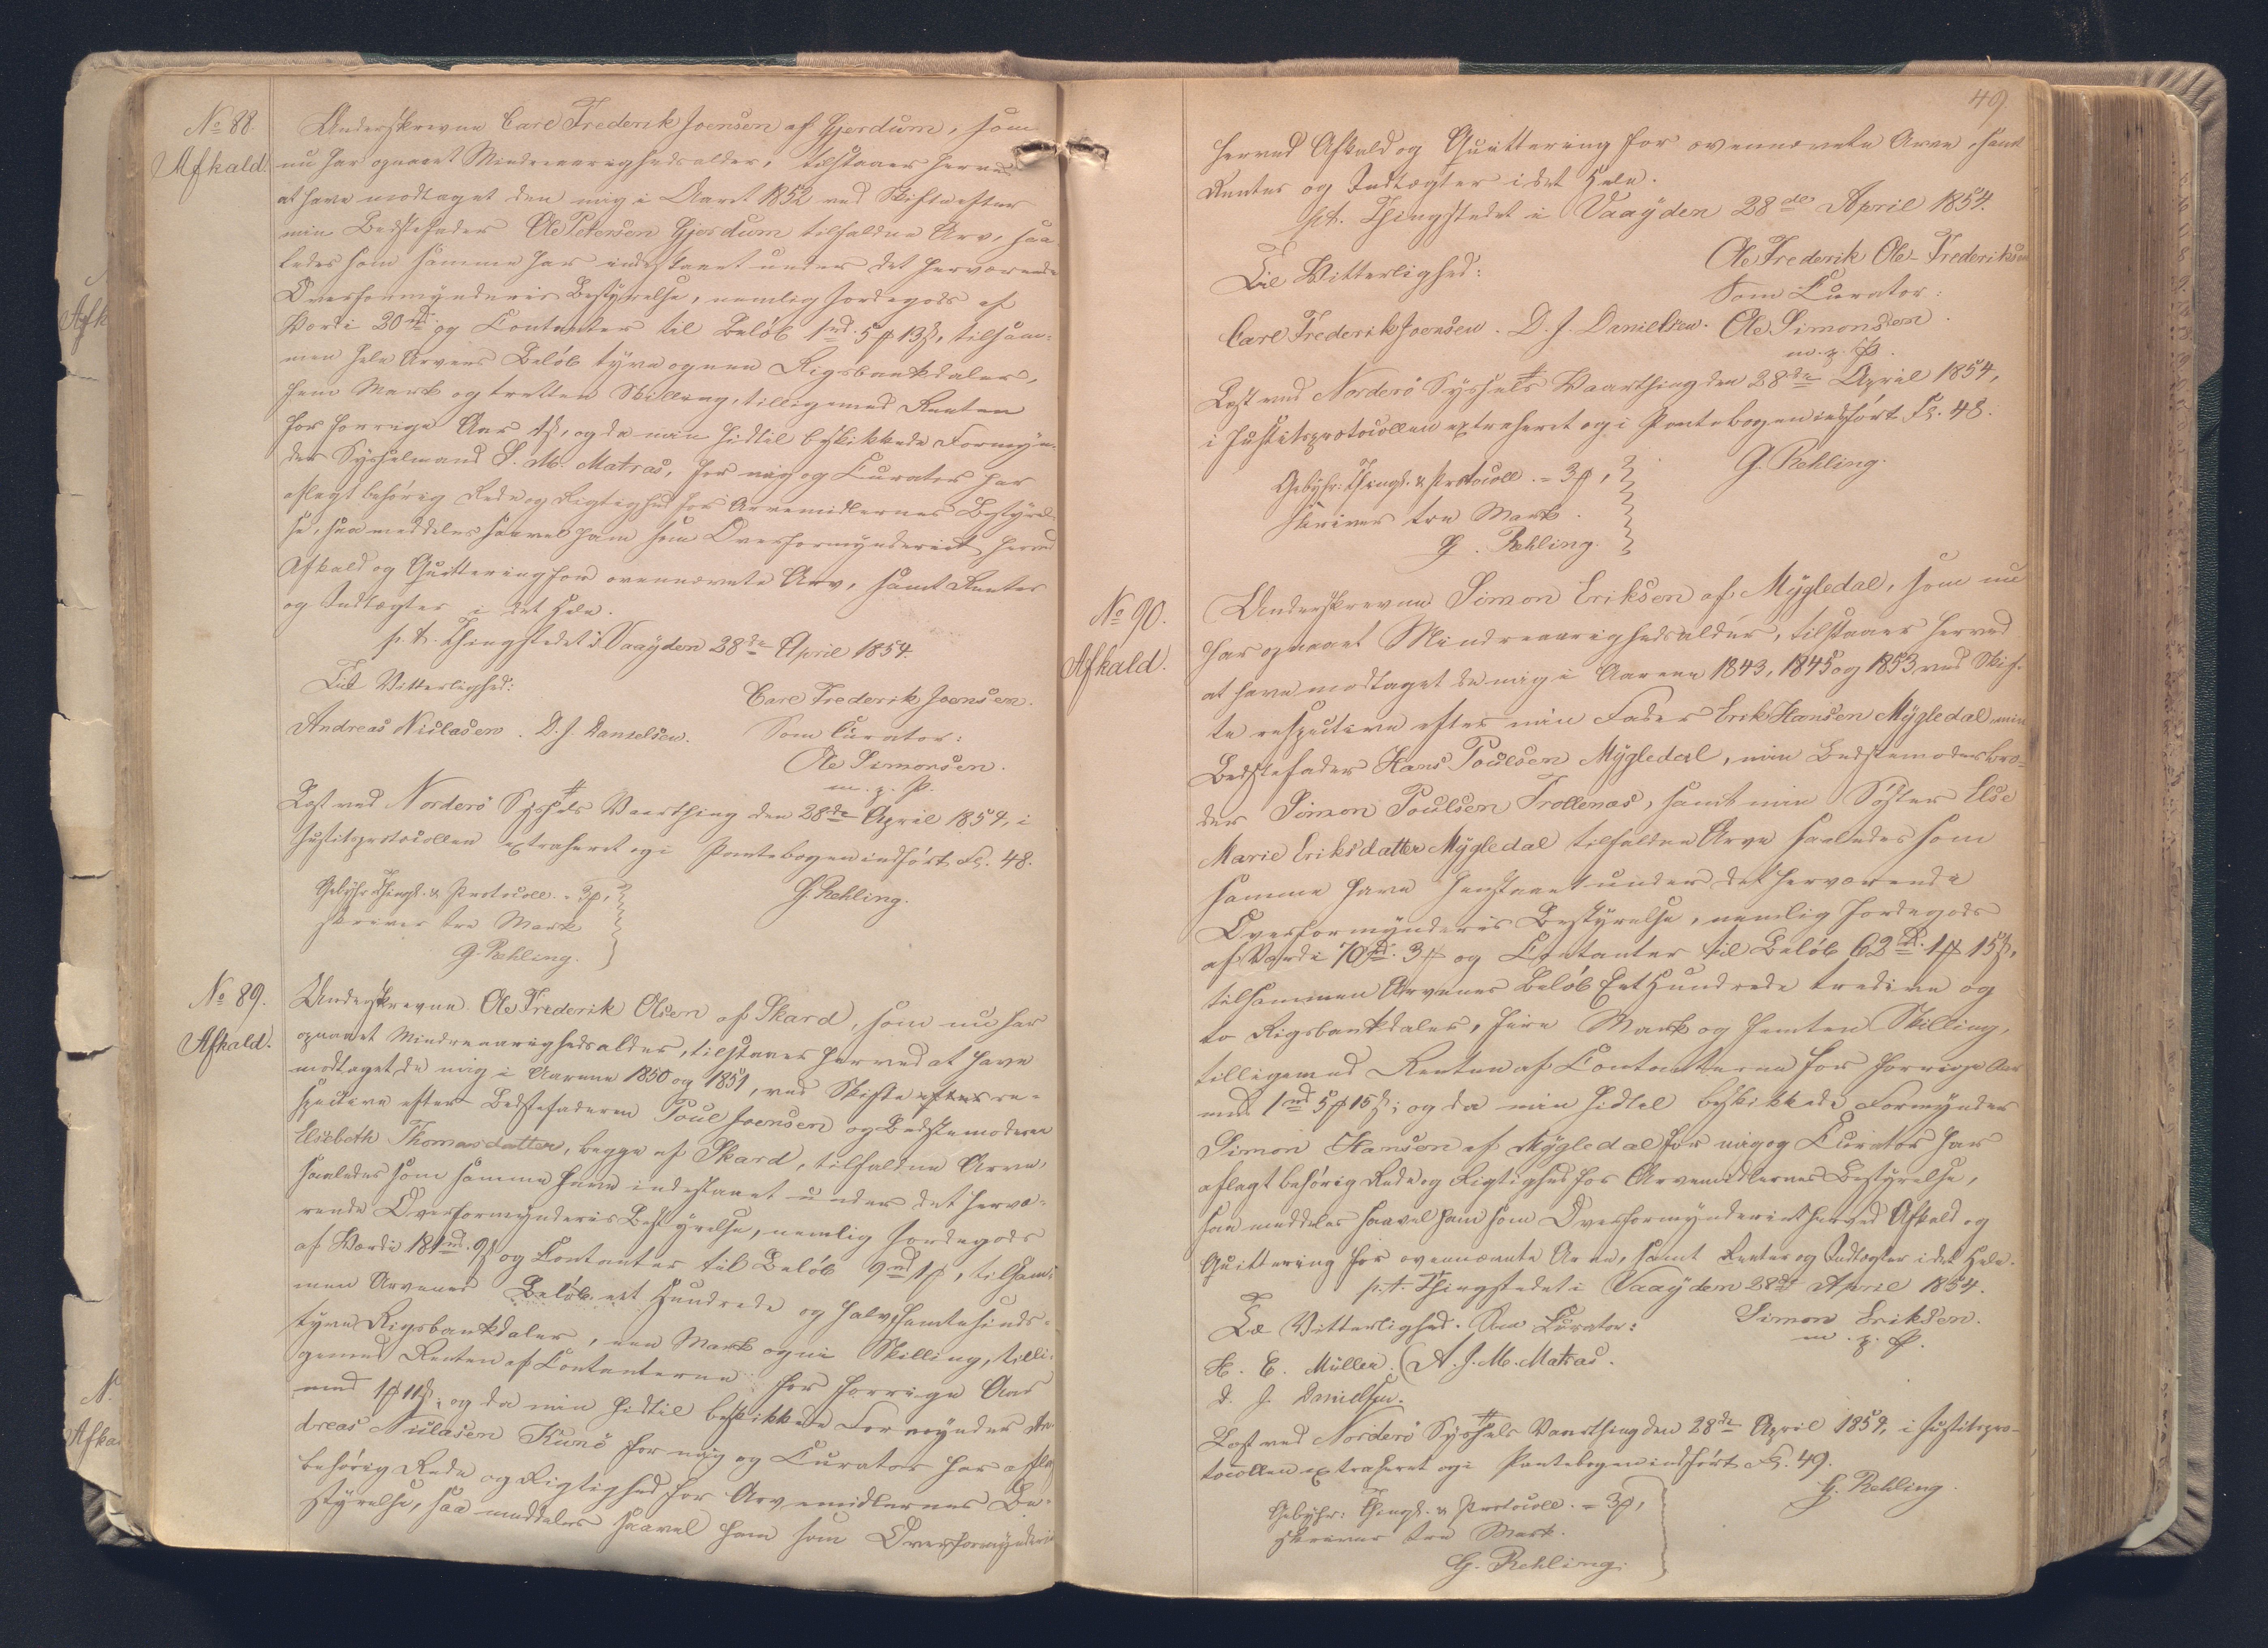 No 88.
Afkald.
Underskrevne Carl Frederik Joensen af Gjerdum, som
nu har opnaaet Mindreaarighedsalder, tilstaaer herved
at have modtaget den mig i Aaret 1852 ved Skifte efter
min Bedstefader Ole Petersen Gjerdum tilfaldne Arv, saa-
ledes som samme har indestaaet under det herværende
Overformynderies Bestyrelse, nemlig Jordegods af
Værdi 20 rd og Contanter til Beløb 1 rd. 5 ₻ 13 ß, tilsam-
men hele Arvens Beløb tyve og een Rigsbankdaler,
fem Mark og tretten Skilling, tilligemed Renten
for forrige Aar ß, og da min hidtil beskikkede Formyn-
der Sysselmand S. M. Matras, for mig og Curator har
aflagt behørig Rede og Rigtighed for Arvemidlernes Bestyrel-
se, saa meddeles saavel ham som Overformynderiet herved
Afkald og Quittering for ovennævnte Arv, samt Renter
og Indtægter i det Hele.
p. t. Thingstedet i Vaag den 28de April 1854.
Til Vitterlighed:
Carl Frederik Joensen.
Andreas Niclasen. D. J. Danielsen.
Som Curator:
Ole Simonsen.
m. p. P.
Læst ved Norderø Syssels Vaarthing den 28de April 1854, i
Justitsprotocollen extraheret og i Pantebogen indført Fol. 48.
Gebyhr: Thingl. & Protocoll. = 3 ₻,
skriver tre Mark
G. Rehling.
G. Rehling.
No 89.
Afkald.
Underskrevne Ole Frederik Olsen af Skard, som nu har
opnaaet Mindreaarighedsalder, tilstaaer herved at have
modtaget de mig i Aarene 1850 og 1851, ved Skifte efter re-
spective efter Bedstefaderen Poul Joensen og Bedstemoderen
Elsebeth Thomasdatter, begge af Skard, tilfaldne Arve,
saaledes som samme have indestaaet under det hervæ-
rende Overformynderies Bestyrelse, nemlig Jordegods
af Værdi 181 rd. 9 ß og Contanter til Beløb 9 rd 1 ₻, tilsam-
men Arvenes Beløb eet Hundrede og halvfemtesinds-
tyve Rigsbankdaler, een Mark og ni Skilling, tilli-
gemed Renten af Contanterne for forrige Aar
med 1 ₻ 11 ß; og da min hidtil beskikkede Formynder An-
dreas Niclasen Kunø for mig og Curator har aflagt
behørig Rede og Rigtighed for Arvemidlernes Be-
styrelse, saa meddeles saavel ham som Overformynderiet
49.
herved Afkald og Quittering for ovennævnte Arve, samt
Renter og Indtægter i det Hele.
p.t. Thingstedet i Vaag den 28de April 1854.
Til Vitterlighed:
Ole Frederik Ole-Frederiksen
Som Curator:
Carl Frederik Joensen. D. J. Danielsen. Ole Simonsen.
m. p. P.
Læst ved Norderø Syssels Vaarthing den 28de April 1854,
i Justitsprotocollen extraheret og i Pantebogen indført Fol. 48.
Gebyhr: Thingl. & Protocoll. = 3 ₻,
skriver tre Mark.
G. Rehling.
G. Rehling.
No 90.
Afkald.
Underskrevne Simon Eriksen af Mÿgledal, som nu
har opnaaet Mindreaarighedsalder, tilstaaer herved
at have modtaget de mig i Aarene 1843, 1845 og 1853 ved Skif-
te respective efter min Fader Erik Hansen Mÿgledal, min
Bedstefader Hans Poulsen Mÿgledal, min Bedstemoders Bro-
der Simon Poulsen Trollenæs, samt min Søster Else
Marie Eriksdatter Mÿgledal tilfaldne Arve saaledes som
samme have henstaaet under det herværende
Overformynderies Bestyrelse, nemlig Jordegods
af Værdi 70 rd. 3 ₻ og Contanter til Beløb 62 rd. 1 ₻ 15 ß,
tilsammen Arvenes Beløb Eet Hundrede tredive og
to Rigsbankdaler, fire Mark og femten Skilling,
tilligemed Renten af Contanterne for forrige Aar
med 1 rd 5 ₻ 15 ß; og da min hidtil beskikkede Formynder
Simon Hansen af Mÿgledal for mig og Curator har
aflagt behørig Rede og Rigtighed for Arvemidlernes Bestyrelse,
saa meddeles saavel ham som Overformynderiet herved Afkald og
Quittering for ovennævnte Arve, samt Renter og Indtægter i det Hele.
p.t. Thingstedet i Vaag den 28de April 1854.
Til Vitterlighed. Som Curator:
Simon Eriksen.
m. p. P.
H. C. Müller. A. J. M. Matras.
D. J. Danielsen.
Læst ved Norderø Syssels Vaarthing den 28de April 1854, i Justitspro-
tocollen extraheret og i Pantebogen indført Fol. 49.
Gebyhr: Thingl. & Protocoll. = 3 ₻,
skriver tre Mark.
G. Rehling.
G. Rehling.